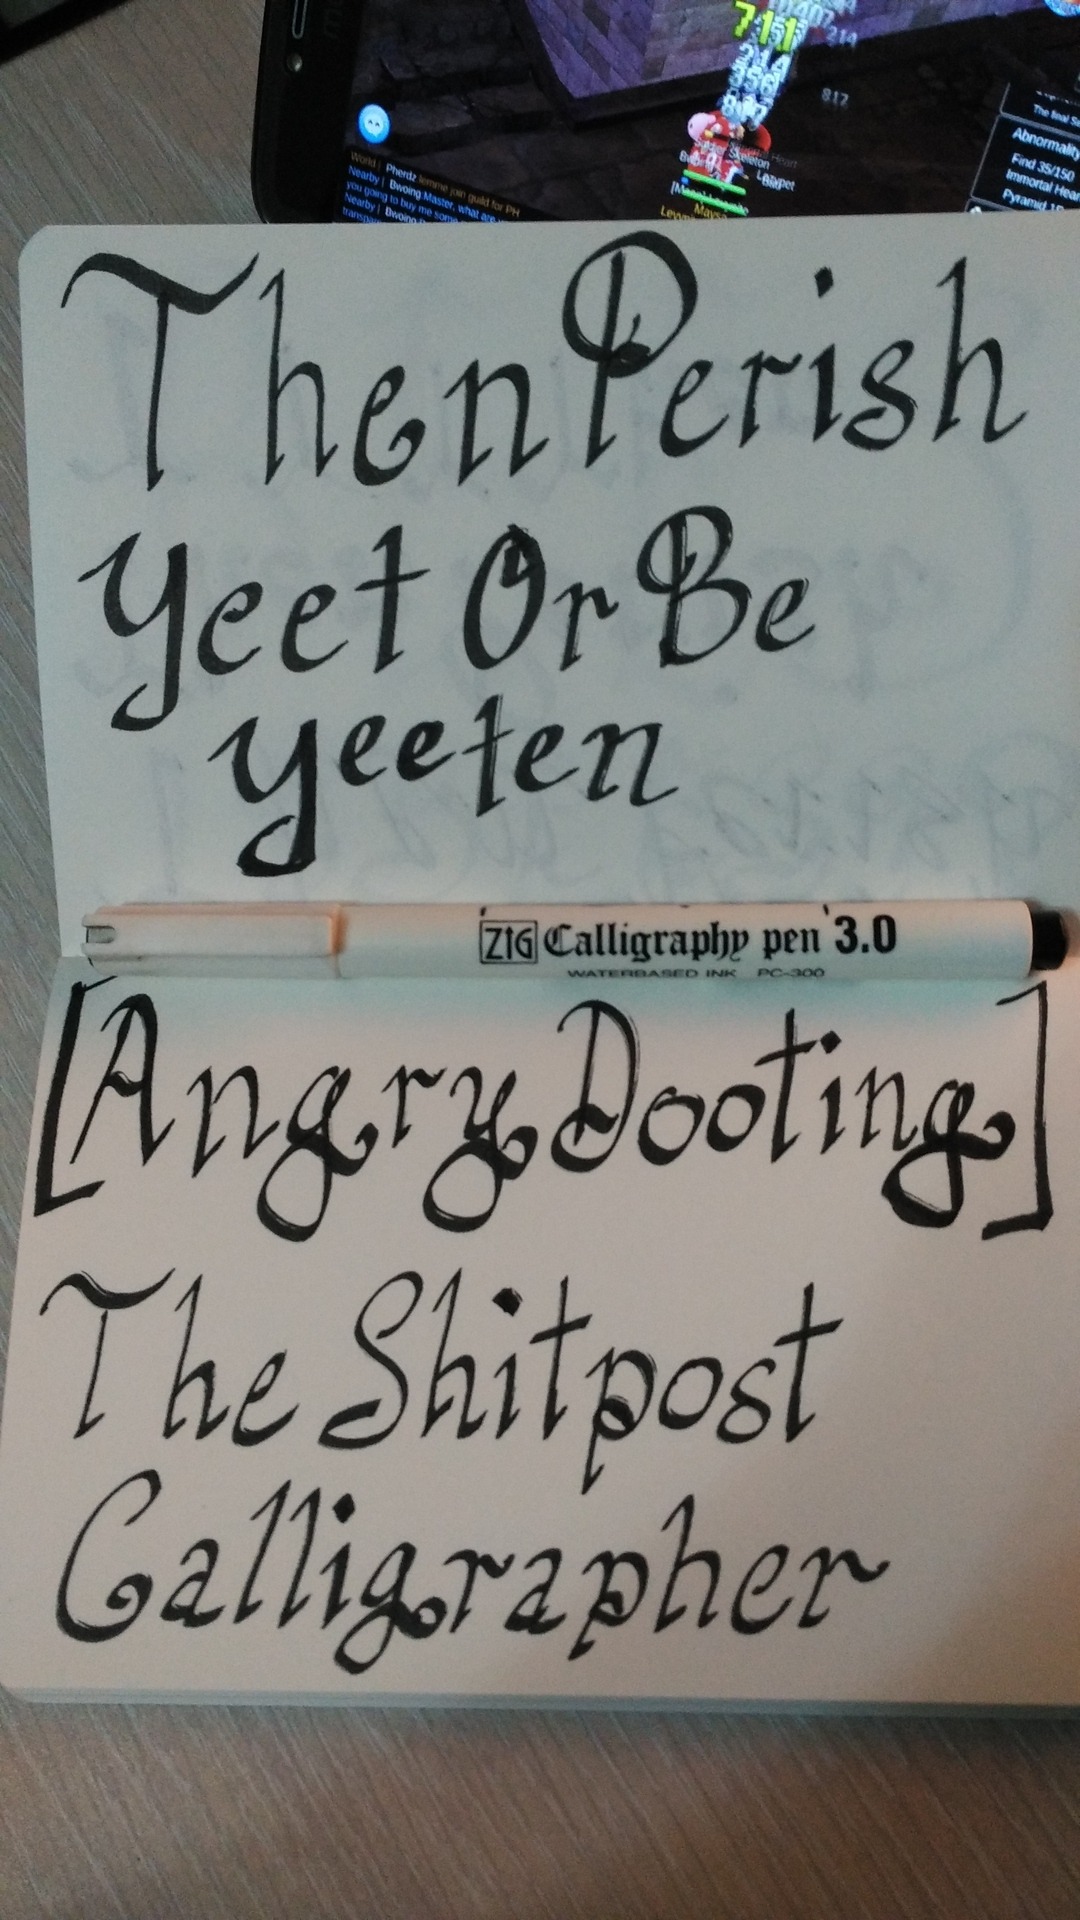 7151
214
214
356
817
World | Pherdz lemme join guild for PH
Nearby | Bwoing Master, what are
you going to buy me some
Nearby | Bwoing
The final
Abnormality
Find 35/150
Immortal Hear
Pyramid
Skeleton
Lazypet
Then Perish
Yeet Or Be
Yeeten
ZIG Calligraphy pen 3.0
WATERBASED INK PC-300
[Angry Dooting]
The Shitpost
Calligrapher